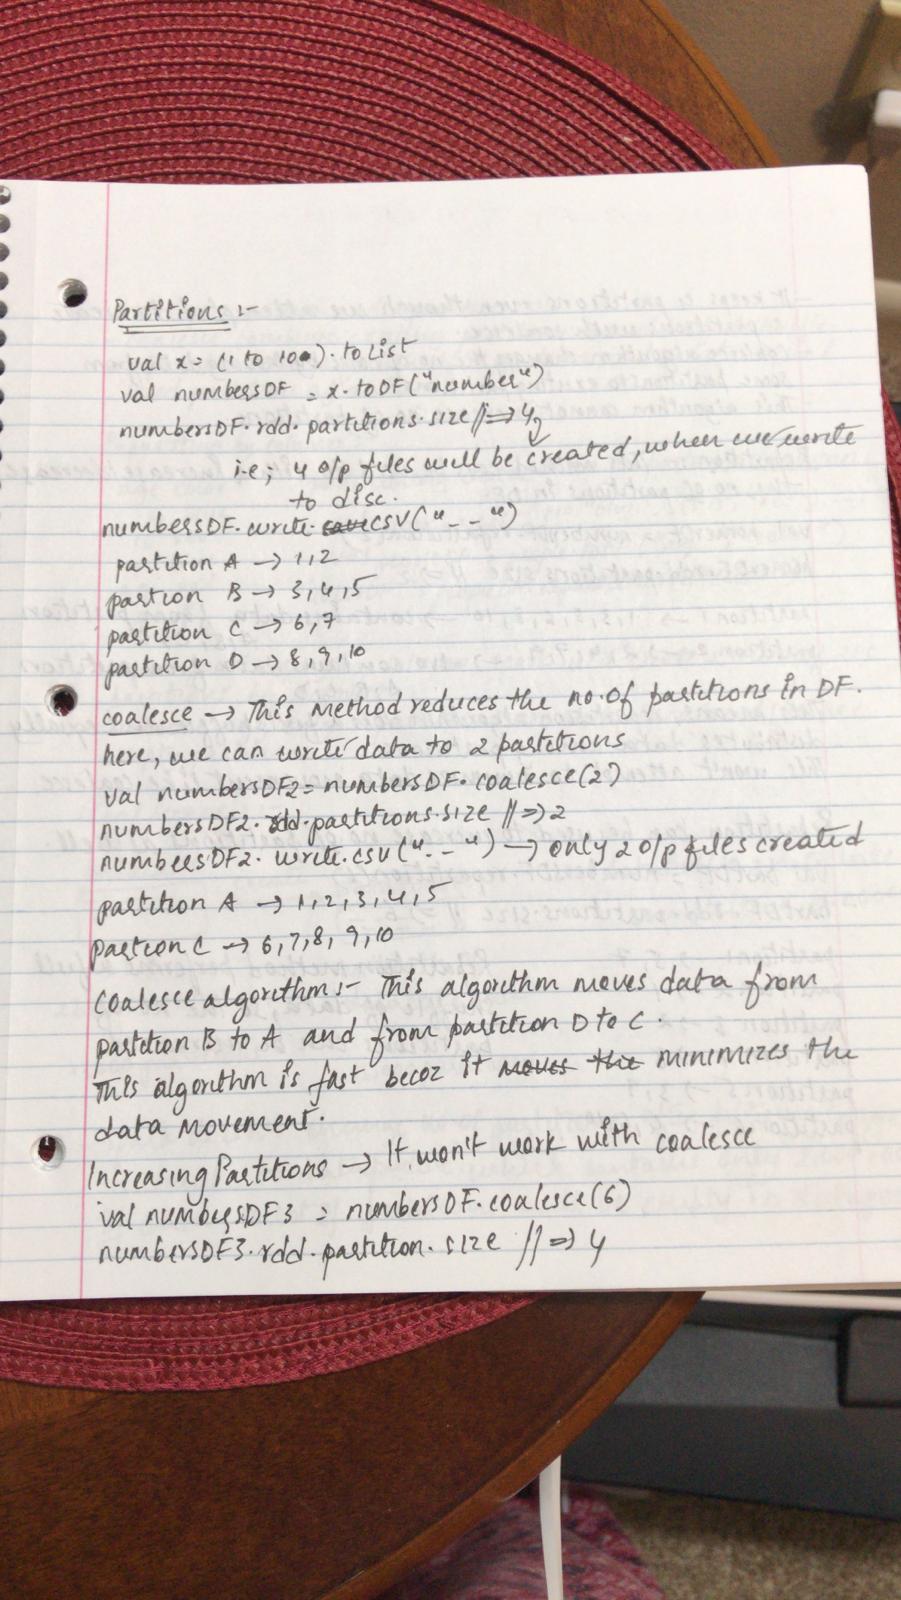 Partitions :-
val x = (1 to 100).toList
val numbersDF = x.toDF("number")
numbersDF.rdd.partitions.size // => 4
i.e; 4 o/p files will be created, when we write
to disc.
numbersDF.write.csv("_ _")
partition A → 1,2
partion B → 3,4,5
partition C → 6,7
partition D → 8,9,10
coalesce → This method reduces the no.of partitions in DF.
here, we can write data to 2 partitions
val numbersDF2 = numbersDF.coalesce(2)
numbersDF2.rdd.partitions.size // => 2
numbersDF2.write.csv("_ _") → only 2 o/p files created
partition A → 1,2,3,4,5
Partion C → 6,7,8,9,10
Coalesce algorithm :- This algorithm moves data from
partition B to A and from partition D to C.
This algorithm is fast becoz it moves the minimizes the
data movement.
Increasing Partitions → It won't work with coalesce
val numbersDF3 = numbersDF.coalesce(6)
numbersDF3.rdd.partition.size // => 4